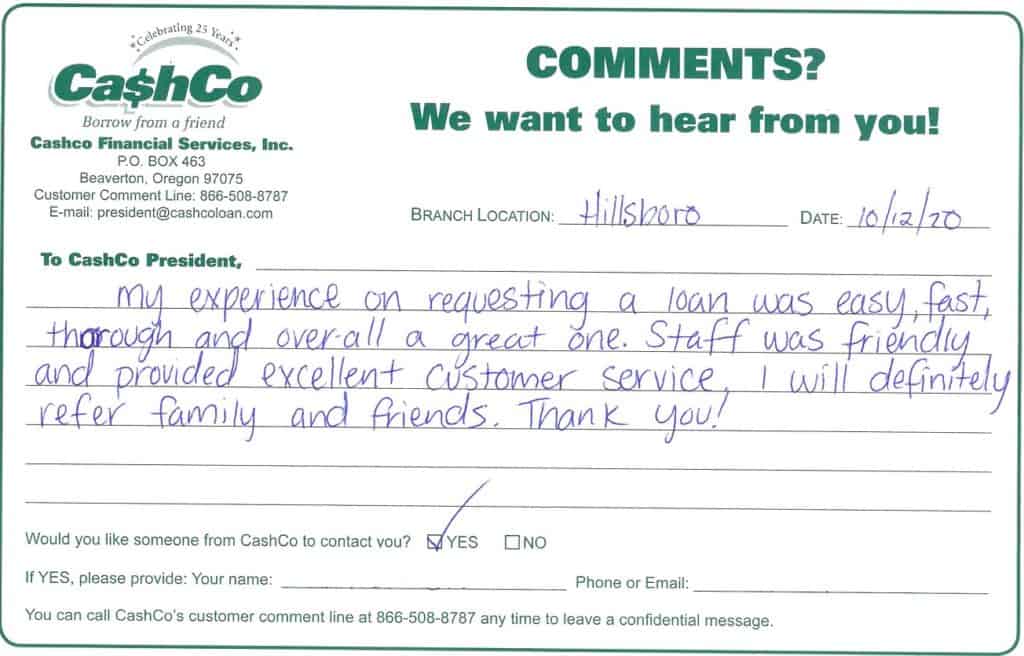 Celebrating 25 Years
Ca$hCo
Borrow from a friend
Cashco Financial Services, Inc.
P.O. BOX 463
Beaverton, Oregon 97075
Customer Comment Line: 866-508-8787
E-mail: president@cashcoloan.com
COMMENTS?
We want to hear from you!
BRANCH LOCATION: Hillsboro DATE: 10/12/20
To CashCo President,
My experience on requesting a loan was easy, fast,
thorough and over-all a great one. Staff was friendly
and provided excellent customer service, I will definitely
refer family and friends. Thank you!
Would you like someone from CashCo to contact you? YES NO
If YES, please provide: Your name: Phone or Email:
You can call CashCo's customer comment line at 866-508-8787 any time to leave a confidential message.